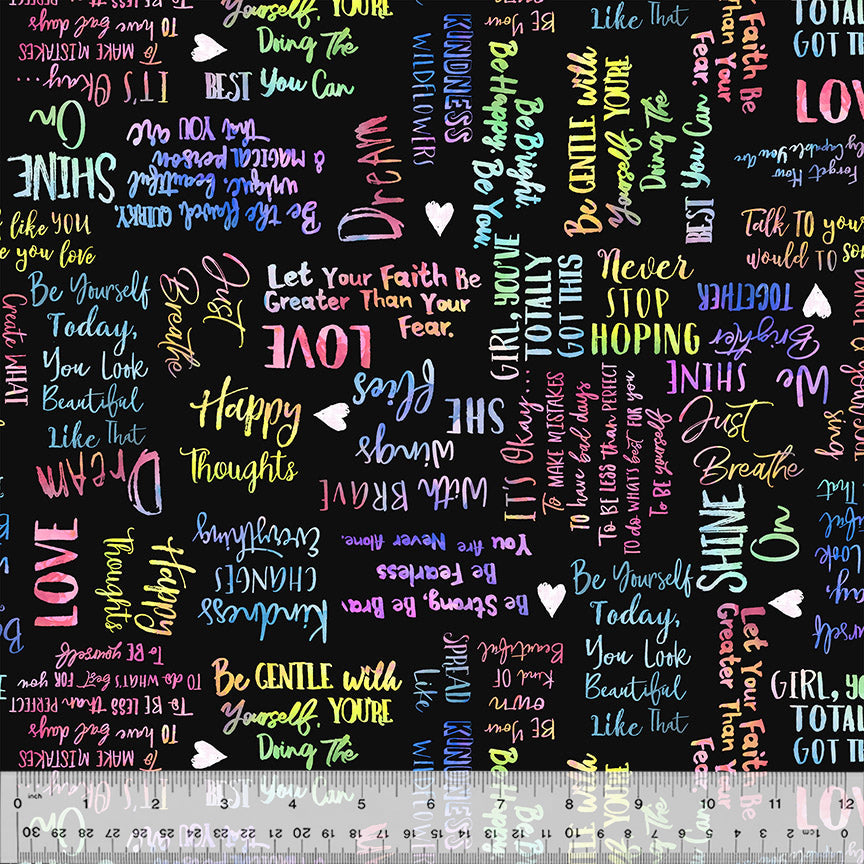 Yourself, YOU'RE
Doing The
BEST You Can
IT'S Okay...
To MAKE MISTAKES
TO have bad days
KINDNESS
WILDFLOWERS
BE Your
Like That
Faith Be
Than Your
Fear.
TOTAL
GOT TH
LOV
Forget How
Capable You Are
SHINE
On
Be the flawed, QUIRKY,
unique, beautiful
& MAGICAL person
that YOU are
Dream
Be Bright.
Be Happy. Be You.
Be GENTLE with
Yourself, YOU'RE
Doing The
BEST You Can
Talk TO your
would TO so
like YOU
you love
Create WHAT
Be Yourself
Today,
You Look
Beautiful
Like That
Just
Breathe
Let Your Faith Be
Greater Than Your
Fear.
LOVE
GIRL, YOU'VE
TOTALLY
GOT THIS
Never
STOP
HOPING
We
SHINE
Brighter
TOGETHER
Happy
Thoughts
SHE
flies
With BRAVE
Wings
IT'S Okay...
To MAKE MISTAKES
TO have bad days
To BE LESS than PERFECT
TO do WHAT'S best FOR you
To BE yourself
Just
Breathe
sing
Dream
LOVE
Happy
Thoughts
Kindness
CHANGES
Everything
Be Strong, Be Brav
Be Fearless
You Are Never Alone.
SHINE
On
Be Yourself
Today,
You Look
Beautiful
Like That
To BE yourself
TO do WHAT'S best FOR you
To BE LESS than PERFECT
TO have bad days
To MAKE MISTAKES
IT'S Okay
Be GENTLE with
Yourself, YOU'RE
Doing The
BEST You Can
SPREAD
KINDNESS
Like
WILDFLOWER
BE Your
own
Kind OF
Beautiful
Let Your Faith Be
Greater Than Your
Fear.
GIRL, YO
TOTAL
GOT TH
LOV
0 inch 1 2 3 4 5 6 7 8 9 10 11 12
30 29 28 27 26 25 24 23 22 21 20 19 18 17 16 15 14 13 12 11 10 9 8 7 6 5 4 3 2 1cm 0